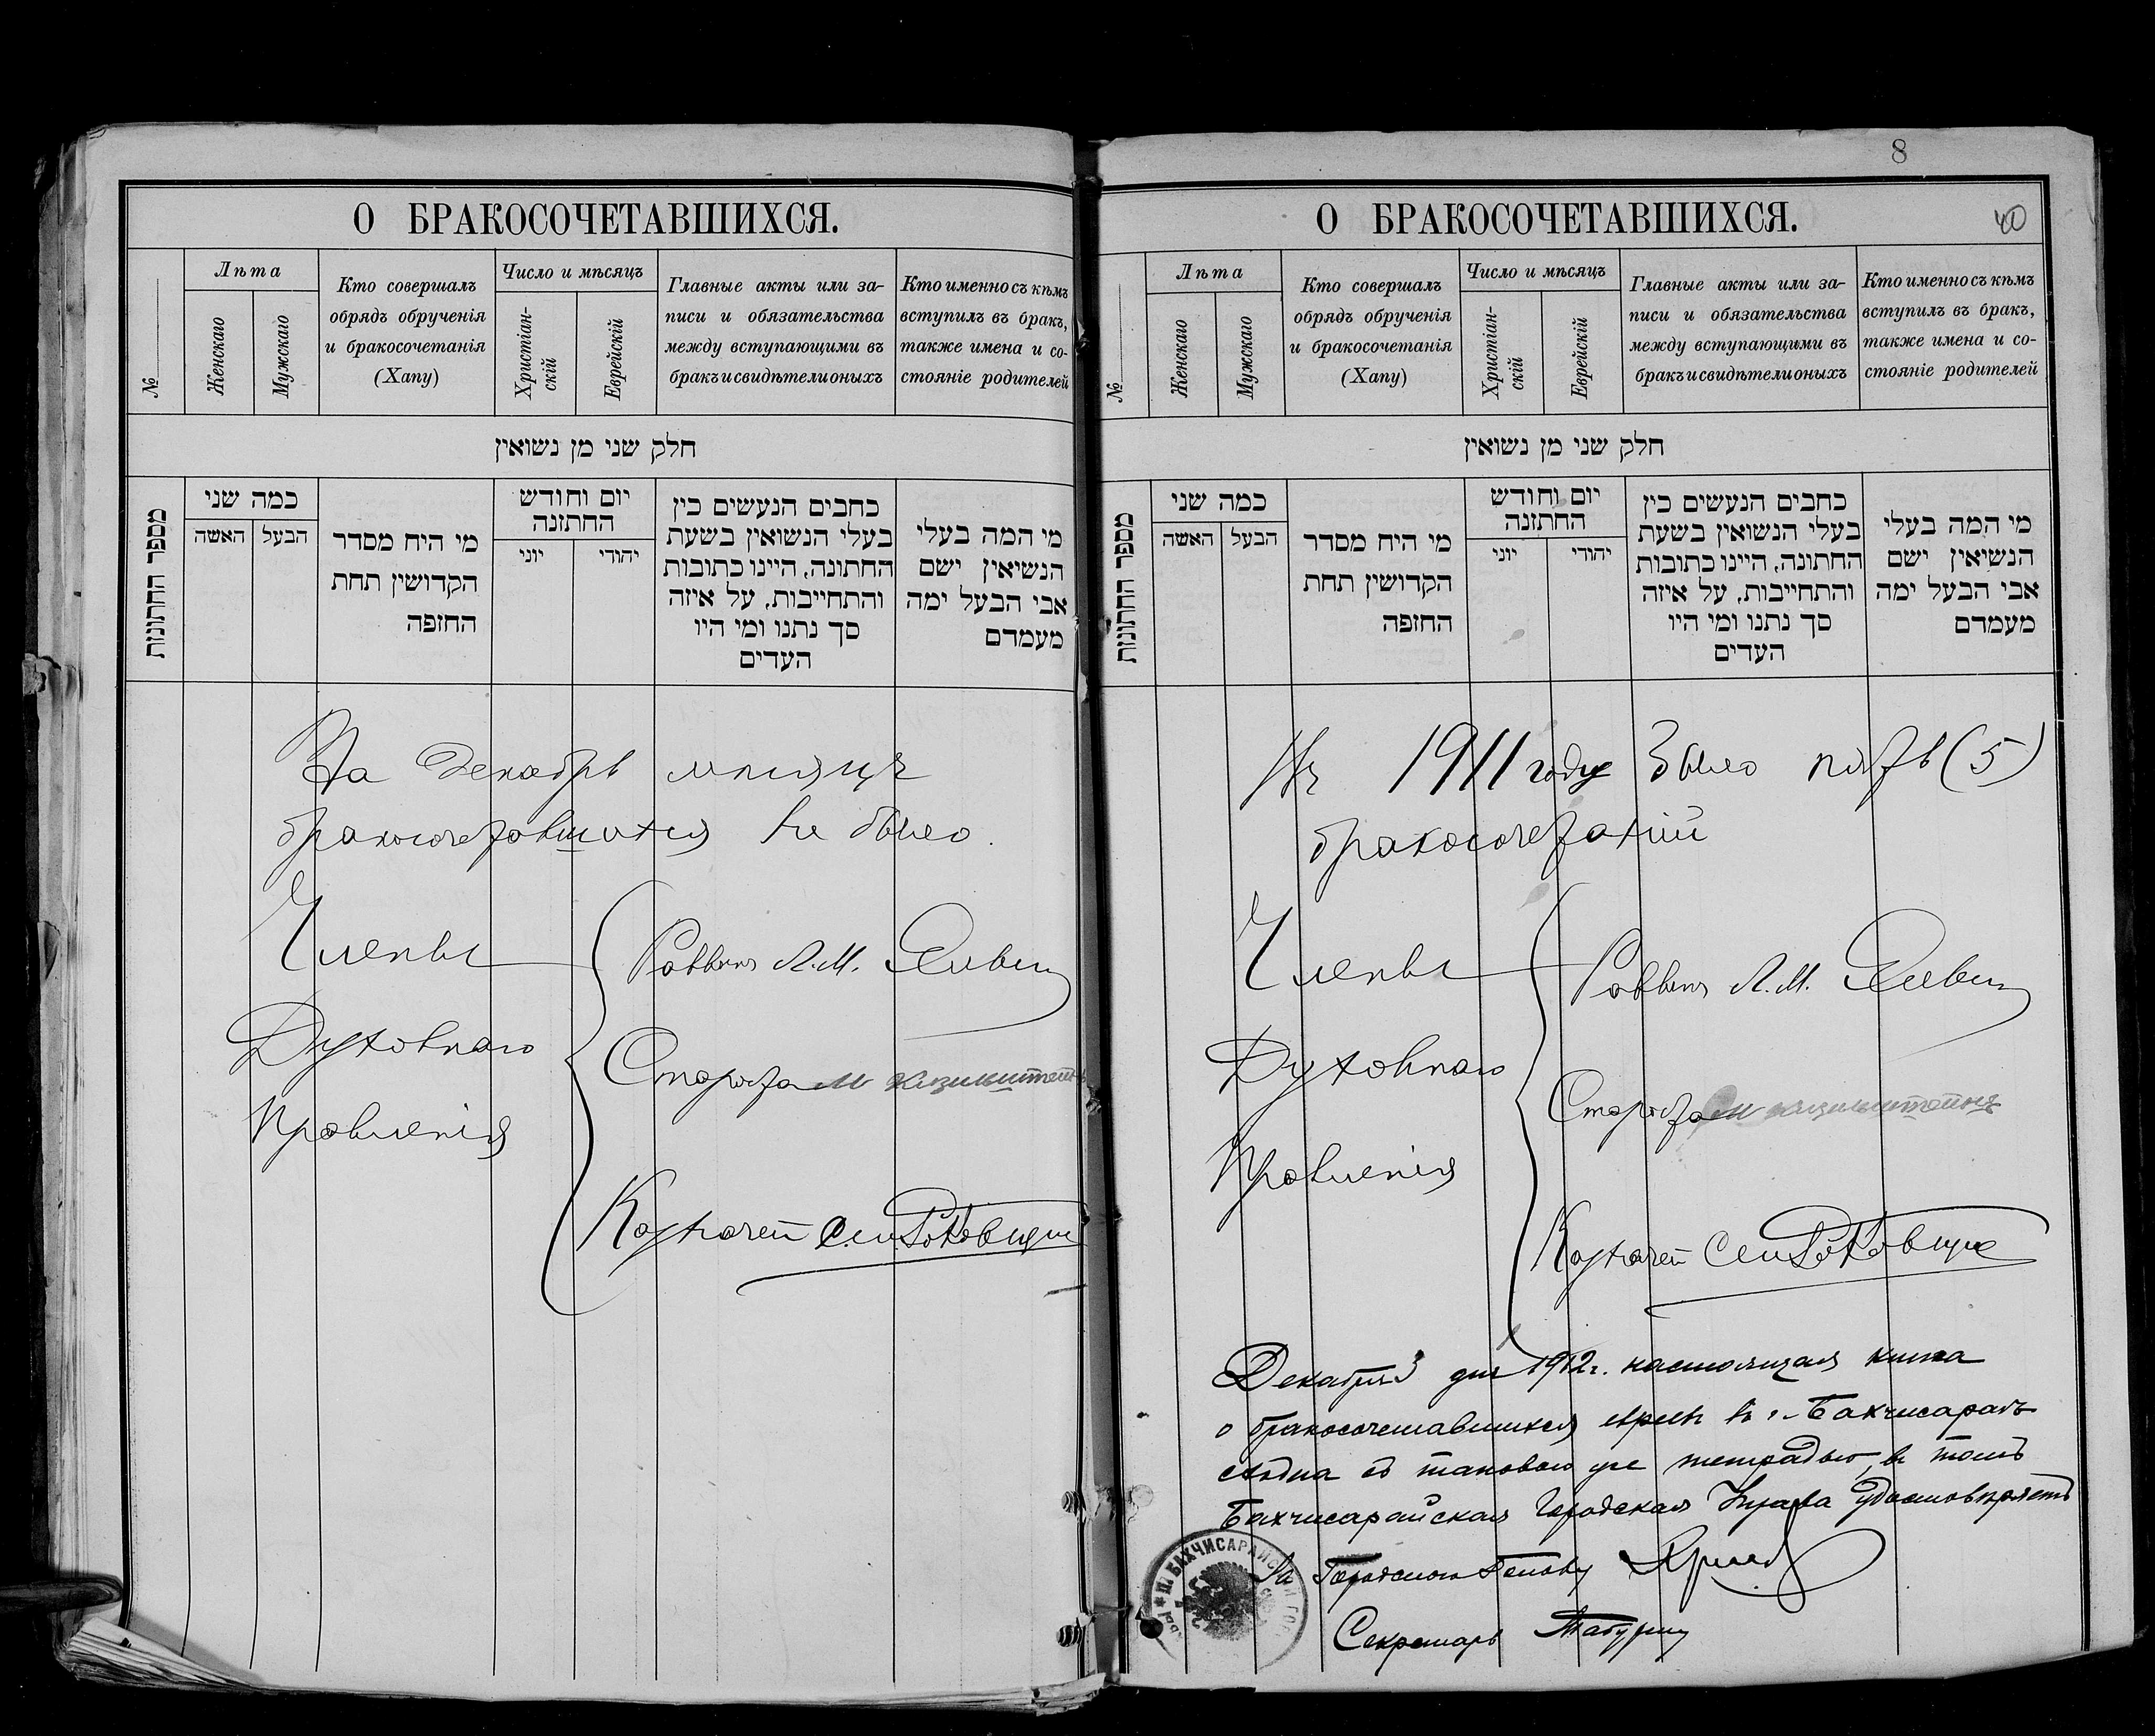 О БРАКОСОЧЕТАВШИХСЯ.
№
Лѣта
Женскаго
Мужскаго
Кто совершалъ
обрядъ обрученія
и бракосочетанія
(Хапу)
Число и мѣсяцъ
Христіан-
скій
Еврейскій
Главные акты или за-
писи и обязательства
между вступающими въ
бракъ и свидѣтели оныхъ
Кто именно съ кѣмъ
вступилъ въ бракъ,
также имена и со-
стояніе родителей
חלק שני מן נשואין
מספר החתונות
כמה שני
האשה
הבעל
מי היח מסדר
הקדושין תחת
החופה
יום וחודש
החתונה
יוני
יהודי
כחבים הנעשים כין
בעלי הנשואין בשעת
החתונה, היינו כתובות
והתחייבות, על איזה
סך נתנו ומי היו
העדים
מי המה בעלי
הנשיאין ישם
אבי הבעל ימה
מעמדם
За Декабрь мѣсяцъ
бракосочетавшихся не было.
Члены
Духовнаго
Правленія
Раввинъ Л. М.
Староста М
Казначей
8
40
О БРАКОСОЧЕТАВШИХСЯ.
№
Лѣта
Женскаго
Мужскаго
Кто совершалъ
обрядъ обрученія
и бракосочетанія
(Хапу)
Число и мѣсяцъ
Христіан-
скій
Еврейскій
Главные акты или за-
писи и обязательства
между вступающими въ
бракъ и свидѣтели оныхъ
Кто именно съ кѣмъ
вступилъ въ бракъ,
также имена и со-
стояніе родителей
חלק שני מן נשואין
מספר החתונות
כמה שני
האשה
הבעל
מי היח מסדר
הקדושין תחת
החופה
יום וחודש
החתונה
יוני
יהודי
כחבים הנעשים כין
בעלי הנשואין בשעת
החתונה, היינו כתובות
והתחייבות, על איזה
סך נתנו ומי היו
העדים
מי המה בעלי
הנשיאין ישם
אבי הבעל ימה
מעמדם
Въ 1911 году было пять (5)
бракосочетаній
Члены
Духовнаго
Правленія
Раввинъ Л. М.
Староста М
Казначей
Декабря 3 дня 1912 г. настоящая книга
о бракосочетавшихся евреях в г. Бахчисараѣ
сходна съ таковою же тетрадью, в томъ
Бахчисарайская Городская Управа удостовѣряетъ
За Городского Голову
Секретарь
БАХЧИСАРАЙС